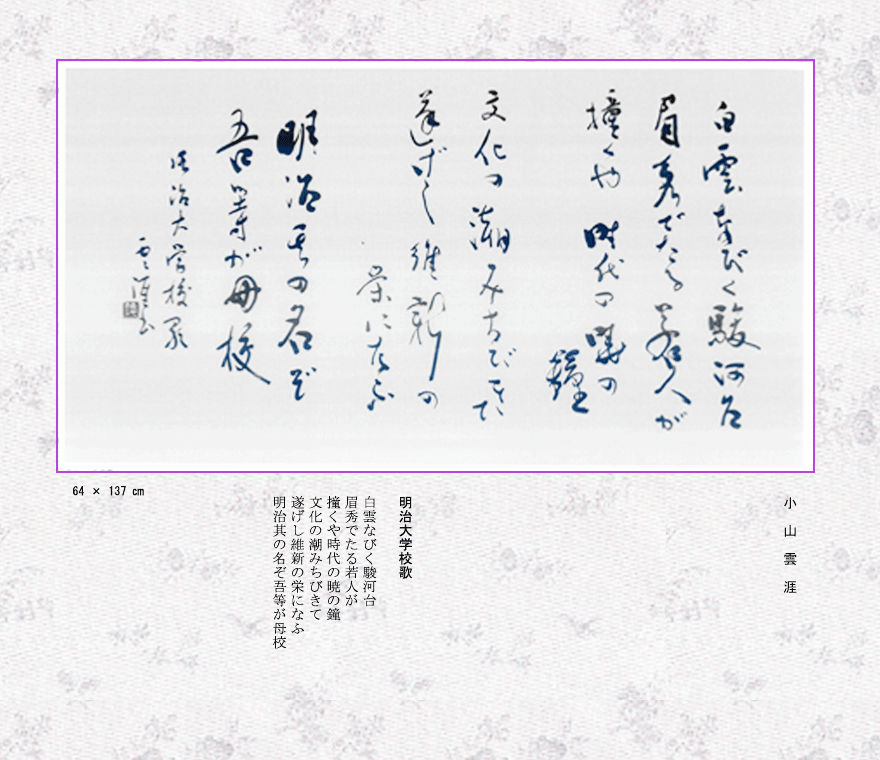 白雲なびく駿河台
眉秀でたる若人が
撞くや時代の暁の
鐘
文化の潮みちびきて
遂げし維新の
栄になふ
明治其の名ぞ
吾等が母校
明治大学校歌
雲涯書
64 × 137 cm
小山雲涯
明治大学校歌
白雲なびく駿河台
眉秀でたる若人が
撞くや時代の暁の鐘
文化の潮みちびきて
遂げし維新の栄になふ
明治其の名ぞ吾等が母校